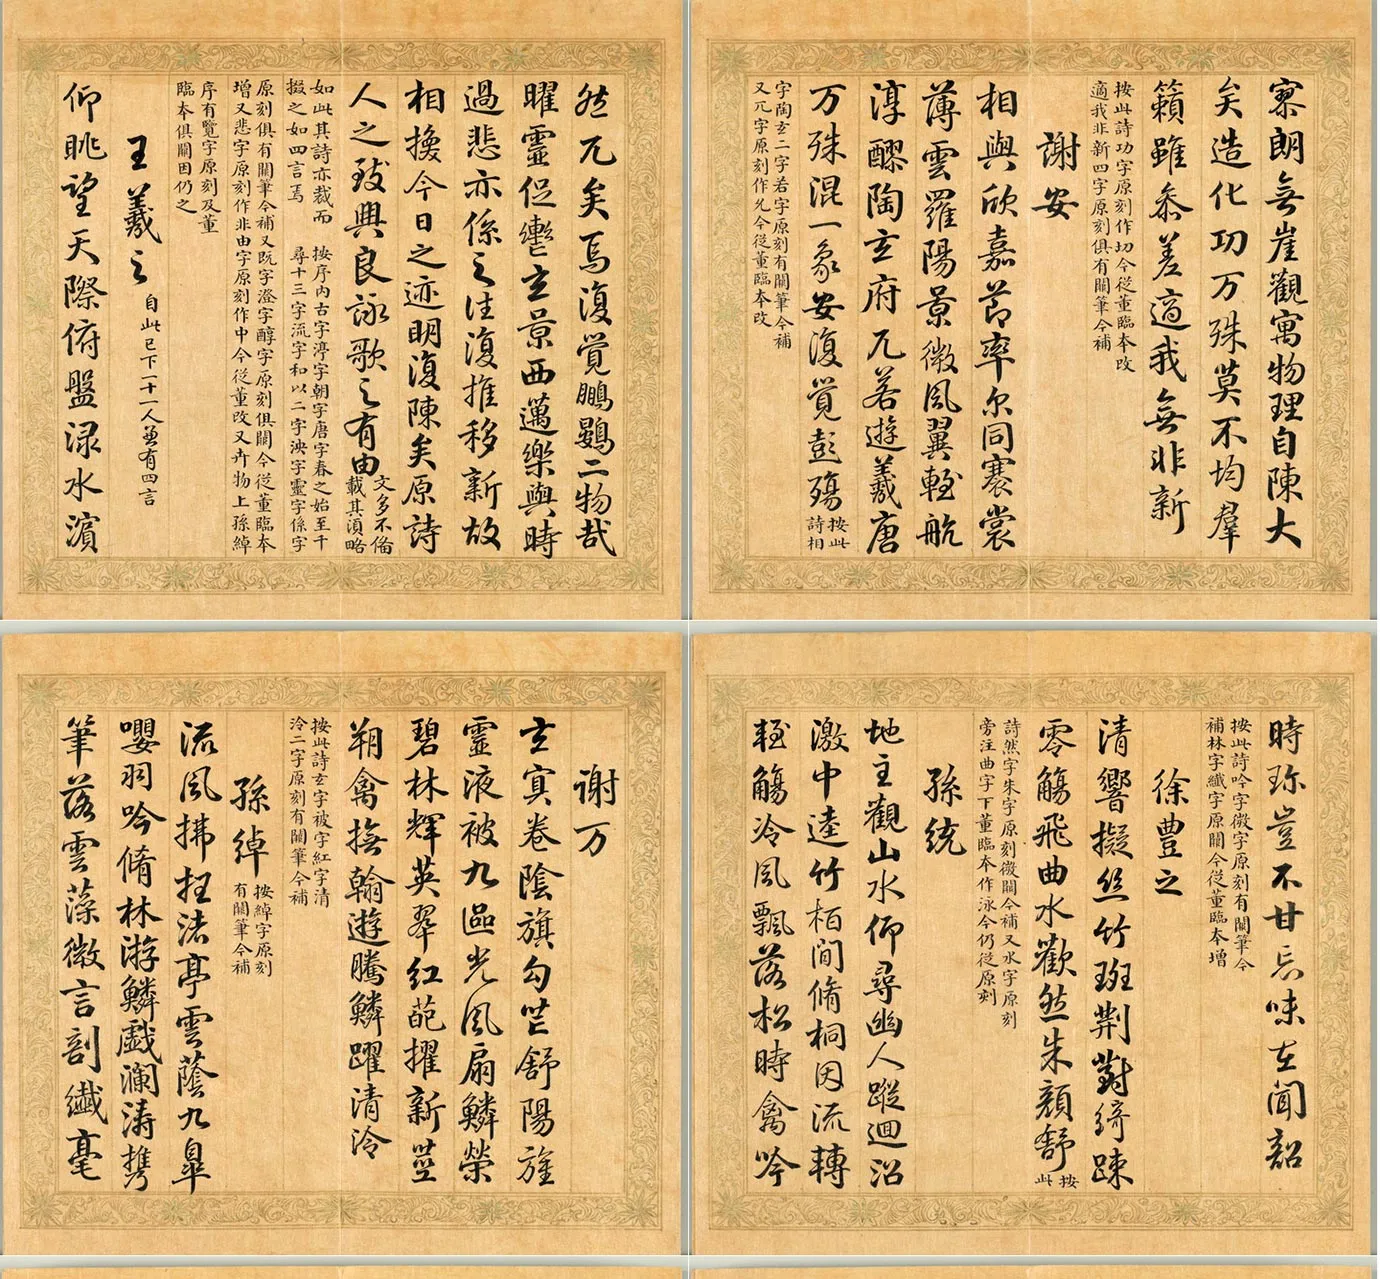 然兀矣焉復覺鵬鷃二物哉
曜靈促轡玄景西邁樂與時
過悲亦係之往復推移新故
相換今日之迹明復陳矣原詩
人之致興良詠歌之有由
文多不備
載其湏略
如此其詩亦裁而
掇之如四言焉
按序內古字渟字朝字唐字春之始至千
尋十三字流字和以二字泱字靈字係字
原刻俱有闕筆今補又既字澄字醇字原刻俱闕今從董臨本
增又悲字原刻作非由字原刻作中今從董改又卉物上孫綽
序有覽字原刻及董
臨本俱闕因仍之
王羲之
自此已下一十一人並有四言
仰眺望天際俯盤淥水濱
寥朗無崖觀寓物理自陳大
矣造化功万殊莫不均羣
籟雖叅差適我無非新
按此詩功字原刻作切今從董臨本改
適我非新四字原刻俱有闕筆今補
謝安
相與欣嘉節率尔同褰裳
薄雲羅陽景微風翼輕航
淳醪陶玄府兀若遊羲唐
万殊混一象安復覺彭殤
按此
詩相
字陶玄二字若字原刻有闕筆今補
又兀字原刻作允今從董臨本改
謝万
玄冥卷陰旗勾芒舒陽旌
靈液被九區光風扇鱗榮
碧林輝英翠紅葩擢新莖
翔禽撫翰遊騰鱗躍清泠
按此詩玄字被字紅字清
泠二字原刻有闕筆今補
孫綽
按綽字原刻
有闕筆今補
流風拂枉渚亭雲蔭九皐
嚶羽吟脩林游鱗戲瀾濤攜
筆落雲藻微言剖纖毫
時珍豈不甘忘味在聞韶
按此詩吟字微字原刻有闕筆今
補林字纖字原闕今從董臨本增
徐豊之
清響擬絲竹班荆對綺踈
零觴飛曲水歡然朱顏舒
按
此
詩然字朱字原刻微闕今補又水字原刻
旁注曲字下董臨本作泳今仍從原刻
孫統
地主觀山水仰尋幽人蹤迴沼
激中逵竹栢間脩桐因流轉
輕觴泠風飄落松時禽吟